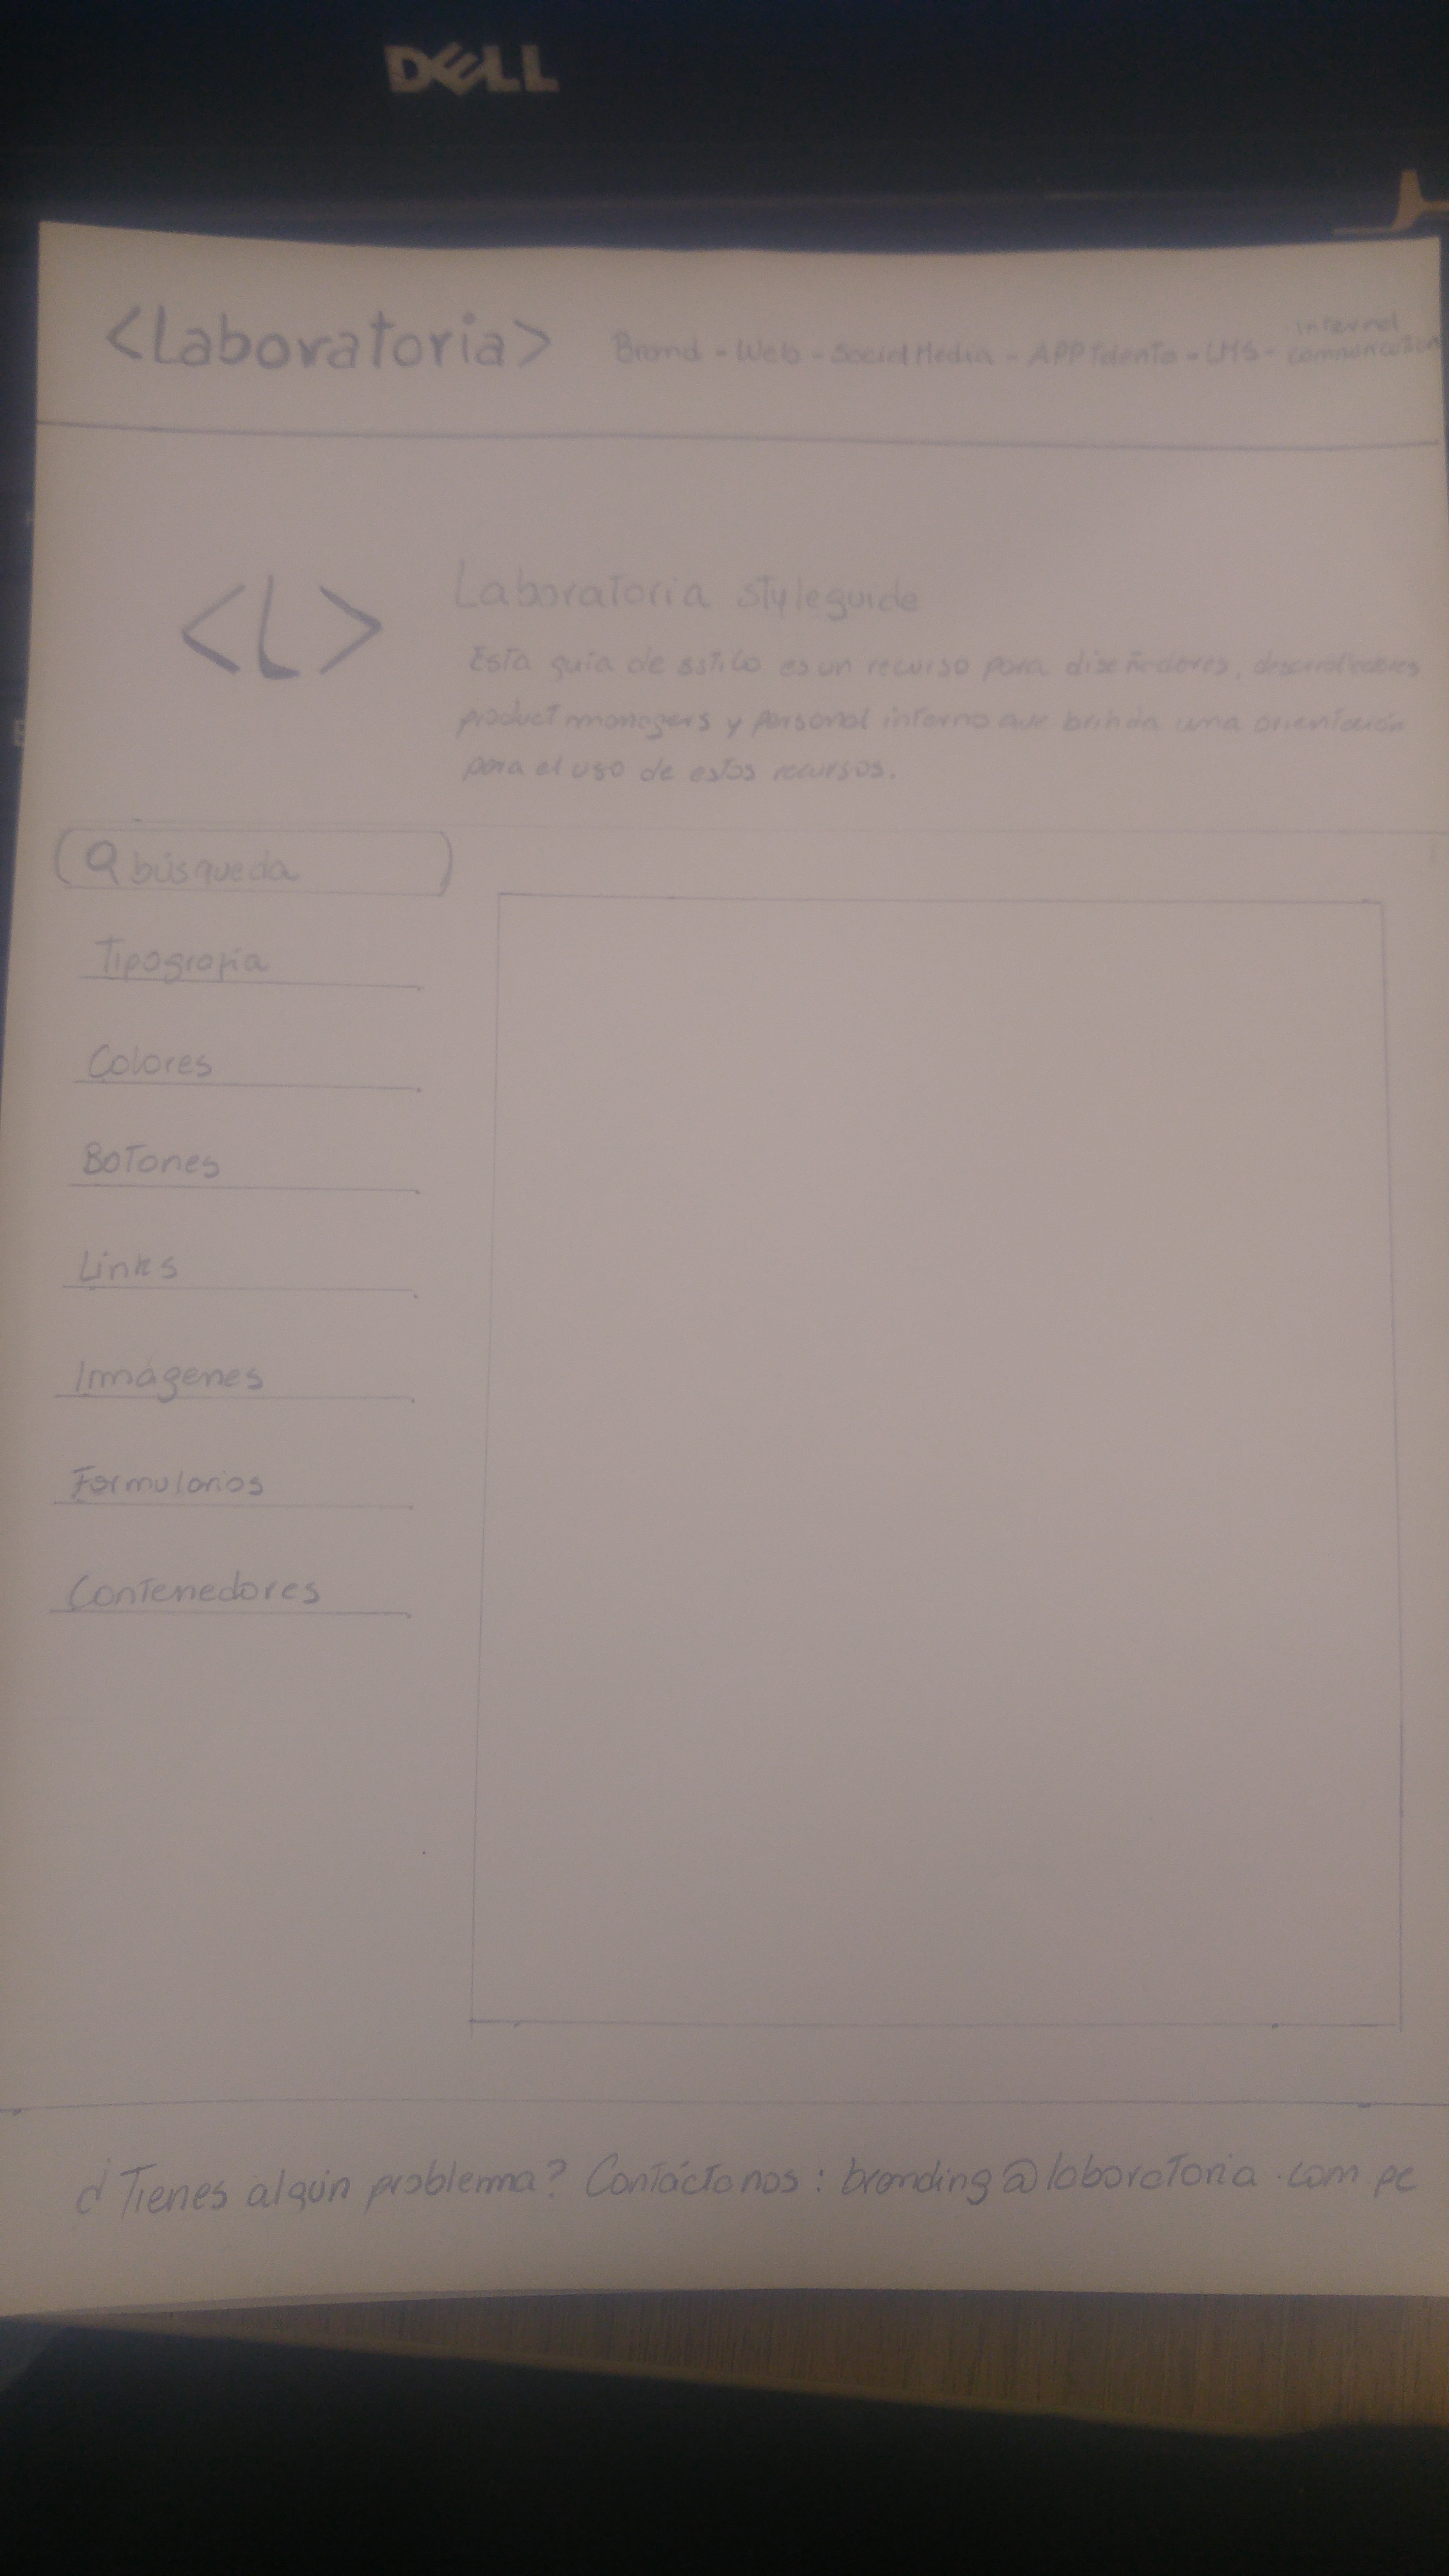 DELL
<Laboratoria> Brand - Web - Social Media - APP Talento - LMS - Internal communication
<L>
Laboratoria styleguide
Esta guía de estilo es un recurso para diseñadores, desarrolladores
product managers y personal interno que brinda una orientación
para el uso de estos recursos.
búsqueda
Tipografía
Colores
Botones
Links
Imágenes
Formularios
Contenedores
¿Tienes algún problema? Contáctanos: branding@laboratoria.com.pe